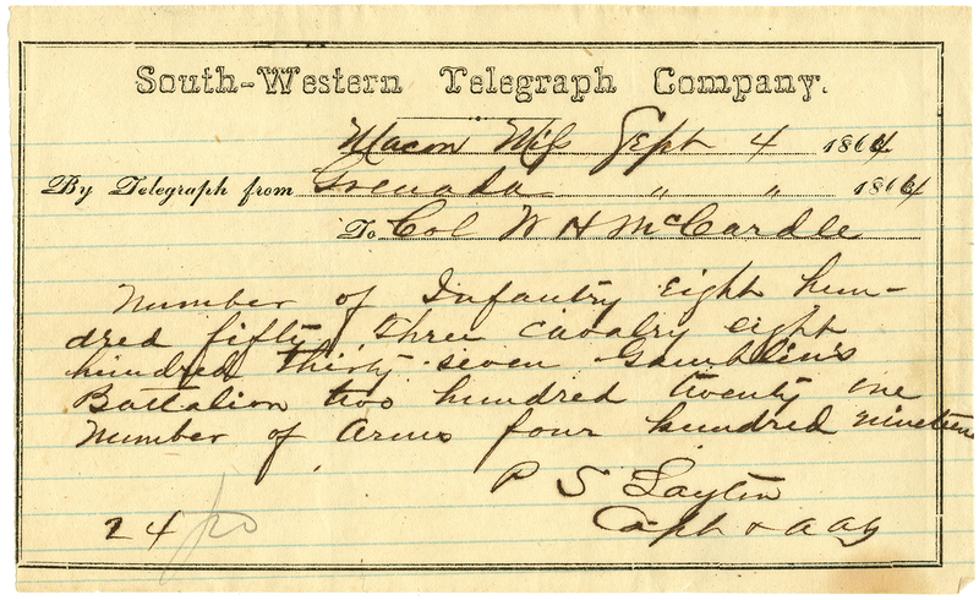 South-Western Telegraph Company.
Macon Miss Sept 4 1864
By Telegraph from Grenada " " 1864
To Col W H McCardle
Number of Infantry eight hun-
dred fifty three cavalry eight
hundred thirty seven Gamblin's
Battalion two hundred twenty one
Number of Arms four hundred nineteen
P S Layton
Capt & A A G
24